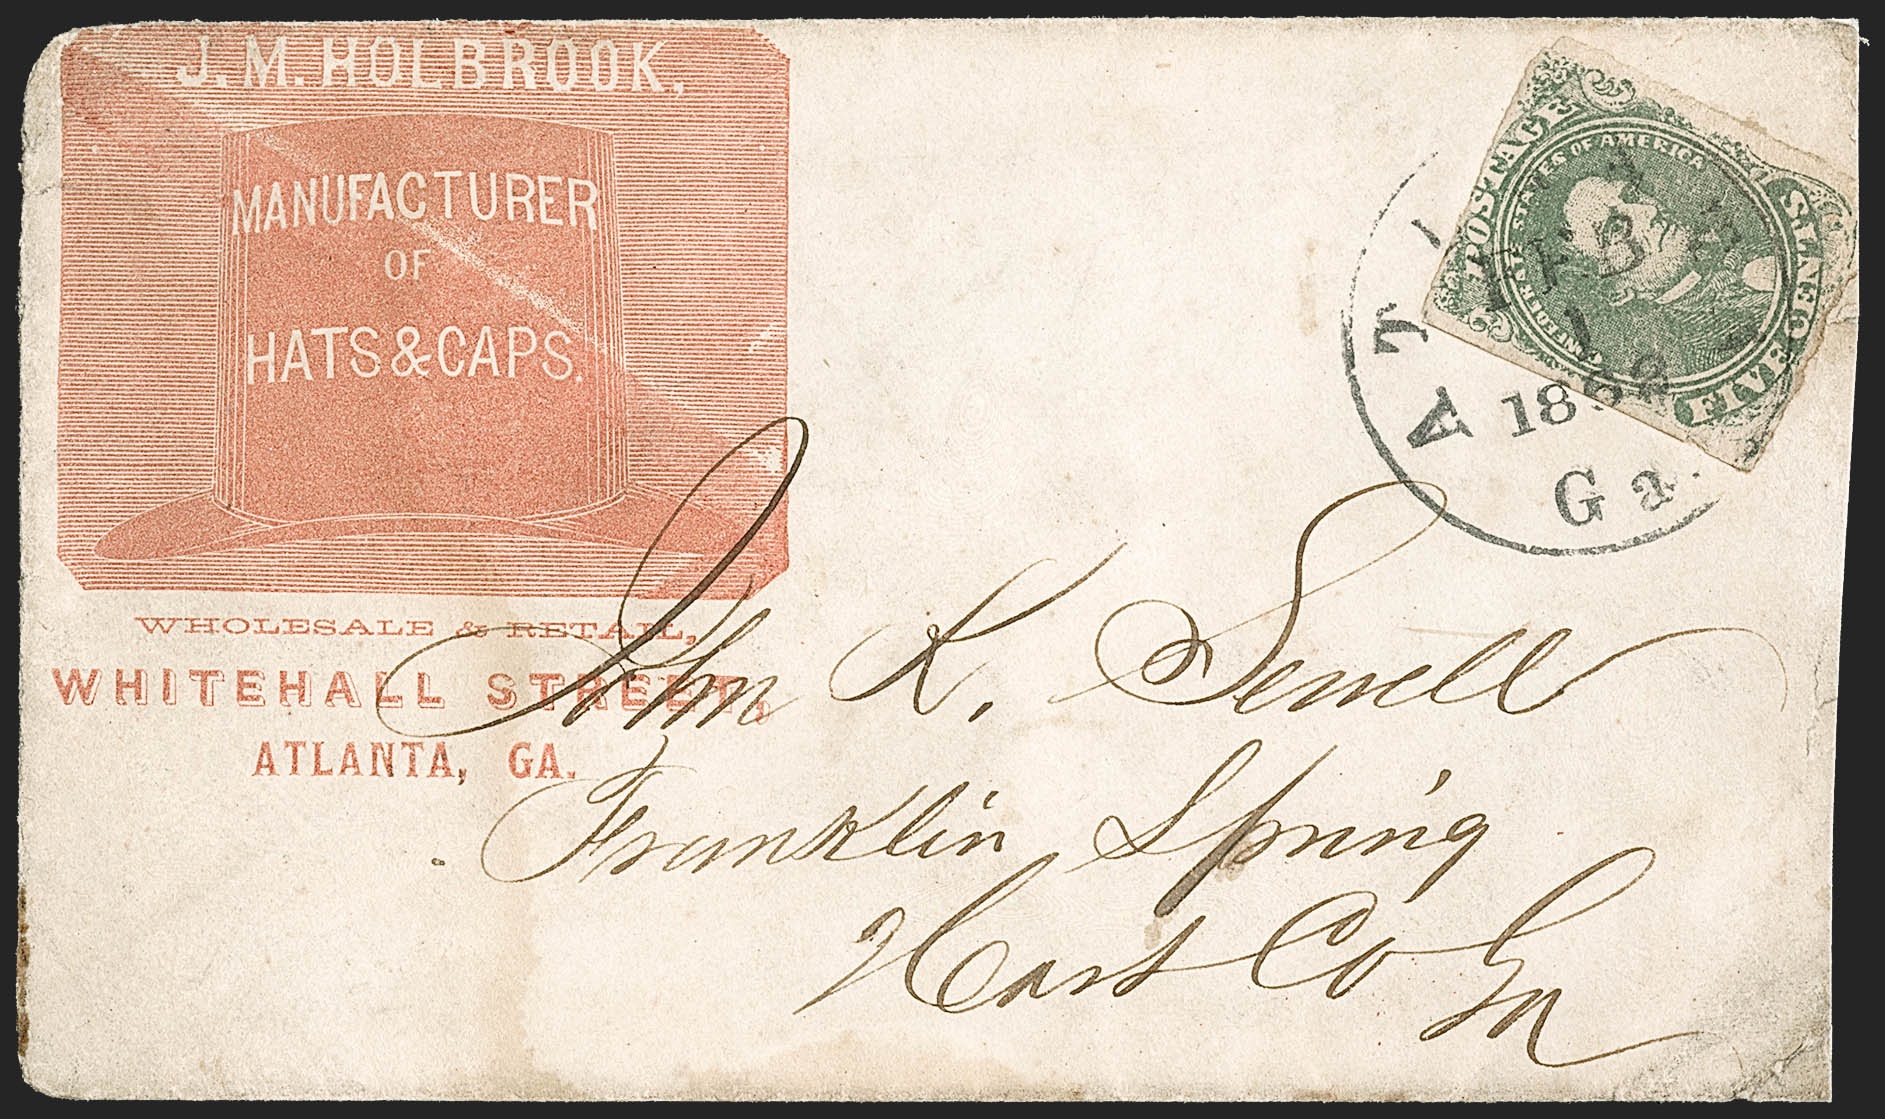 J. M. HOLBROOK.
MANUFACTURER
OF
HATS & CAPS.
WHOLESALE & RETAIL,
WHITEHALL STREET,
ATLANTA, GA.
POSTAGE
CONFEDERATE STATES OF AMERICA
FIVE CENTS
FEB
1
1862
Ga.
John K. Sewell
Franklin Spring
Hart Co Ga